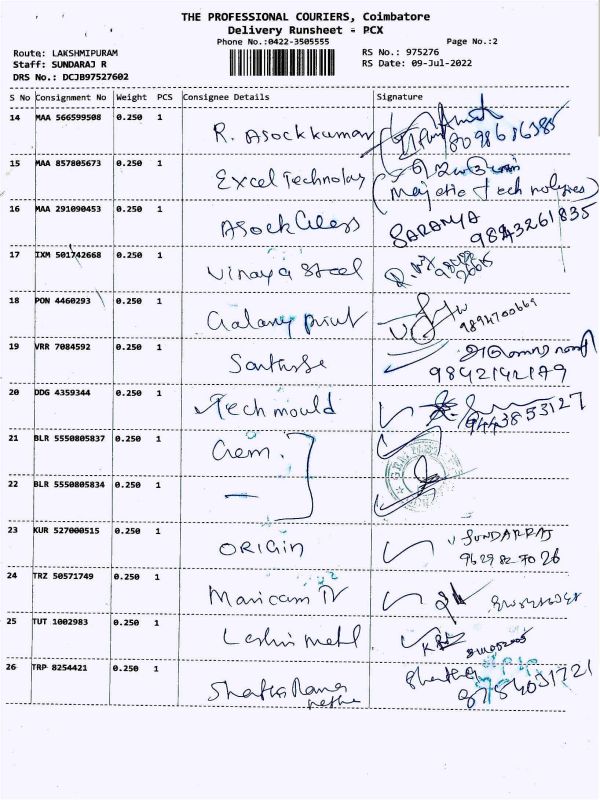 THE PROFESSIONAL COURIERS, Coimbatore
Delivery Runsheet - PCX
Phone No.:0422-3505555 Page No.:2
Route: LAKSHMIPURAM RS No.: 975276
Staff: SUNDARAJ R RS Date: 09-Jul-2022
DRS No.: DCJB97527602
S No Consignment No Weight PCS Consignee Details Signature
14 MAA 566599508 0.250 1 R. Asockkumar
15 MAA 857805673 0.250 1 Excel Technology
(Majetic Technologies)
16 MAA 291090453 0.250 1 Asock Glass SARANYA
9843261835
17 IXM 501742668 0.250 1 Vinayaga Steel
18 PON 4460293 0.250 1 Galaxy print
9894700669
19 VRR 7084592 0.250 1
9842142179
20 DDG 4359344 0.250 1 Tech mould
9443853127
21 BLR 5550805837 0.250 1 Gem.
22 BLR 5550805834 0.250 1 —
23 KUR 527000515 0.250 1 ORIGIN SUNDARRAJ
9629827026
24 TRZ 50571749 0.250 1 Manicam TV
25 TUT 1002983 0.250 1
26 TRP 8254421 0.250 1
8754031721